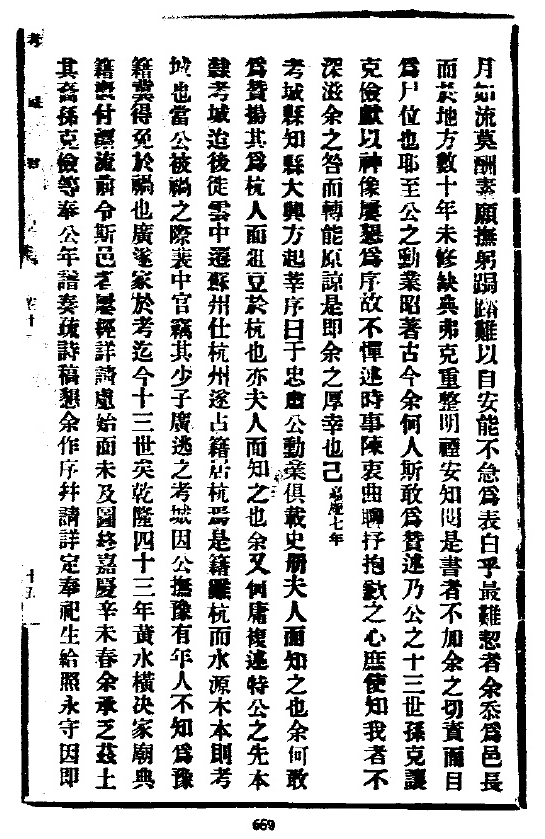 月如流莫酬素願撫躬跼蹐難以自安能不急為表白乎最難恝者余忝為邑長
而於地方數十年未修缺典弗克重整明禋安知閱是書者不加余之切責而目
為尸位也耶至公之勳業昭著古今余何人斯敢為贊述乃公之十三世孫克讓
克儉獻以神像屢懇為序故不憚述時事陳衷曲聊抒抱歉之心庶使知我者不
深滋余之咎而轉能原諒是即余之厚幸也已嘉慶七年
考城縣知縣大興方起莘序曰于忠肅公勳業俱載史册夫人而知之也余何敢
為贊揚其為杭人而俎豆於杭也亦夫人而知之也余又何庸複述特公之先本
隸考城迨後徙雲中遷蘇州仕杭州遂占籍居杭焉是籍雖杭而水源木本則考
城也當公被禍之際裴中官竊其少子廣逃之考城因公撫豫有年人不知為豫
籍冀得免於禍也廣遂家於考迄今十三世矣乾隆四十三年黃水橫决家廟典
籍悉付濁流前令斯邑者屢經詳請處始而未及圖終嘉慶辛未春余承乏茲土
其裔孫克儉等奉公年譜奏疏詩稿懇余作序并請詳定奉祀生給照永守因即
考城
卷十
十五
669